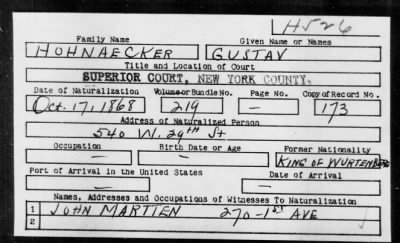 H526
Family Name Given Name or Names
HOHNAECKER GUSTAV
Title and Location of Court
SUPERIOR COURT, NEW YORK COUNTY.
Date of Naturalization Volume or Bundle No. Page No. Copy of Record No.
Oct. 17, 1868 219 — 173
Address of Naturalized Person
540 W. 29th St
Occupation Birth Date or Age Former Nationality
— — KING OF WURTENBERG
Port of Arrival in the United States Date of Arrival
— —
Names, Addresses and Occupations of Witnesses To Naturalization
1 JOHN MARTIEN 270-1st AVE
2